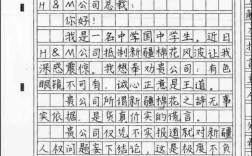 H&M公司总裁:
你好!
我是一名中学国中学生。近日
H&M公司抵制新疆棉花风波让我
深感震惊。我想奉劝贵公司,有色
眼镜不可有,诚心正意是王道。
贵公司所谓新疆棉花之辞无事
实依据,是负真价实的谎言。
贵公司仅凭不实报道就对新疆
人权问题妄下结论,这是极度不负